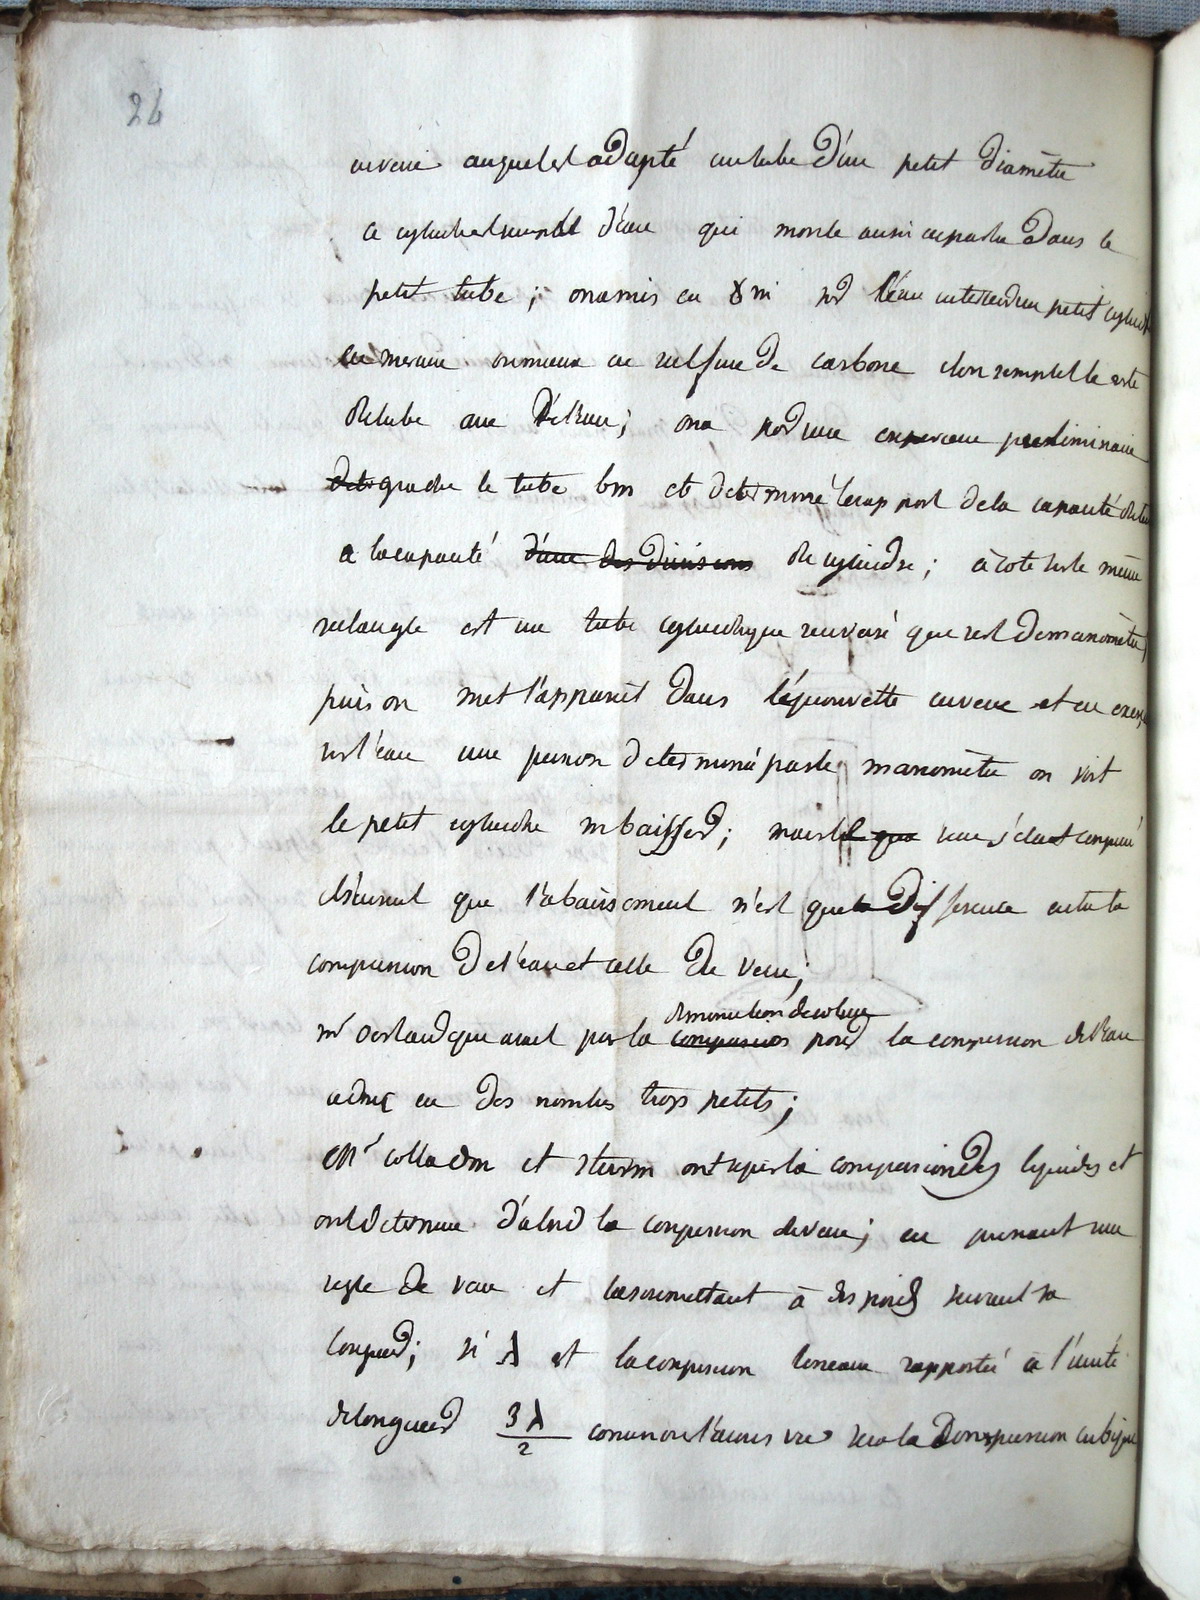 26
en verre auquel est adapté un tube d'un petit diamètre
ce cylindre est rempli d'eau qui monte aussi en partie dans le
petit tube; on a mis en m sur l'eau un petit cylindre
de mercure ou mieux de sulfure de carbone et l'on remplit le reste
du tube avec de l'eau; on a par une expérience préliminaire
gradué le tube bm et determiné le rapport de la capacité du tube
a la capacité d'une des divisions du cylindre; à coté sur le même
rectangle est un tube cylindrique renversé qui sert de manomètre,
puis on met l'appareil dans l'éprouvette en verre et en exerç
sur l'eau une pression determiné par le manomètre on voit
le petit cylindre s'abaisser; mais le verre s'étant comprimé
il s'ensuit que l'abaissement n'est que la difference entre la
compression de l'eau et celle du verre;
diminution de volume
mr oerland que avait par la compression pour la compression de l'eau
reduit en des nombres trops petits;
Mrs colladon et sturm ont repris la compression des liquides et
ont determiné d'abord la compression du verre; en prenant une
regle de verre et la soumettant à des poids suivant sa
longueur; si λ est la compression lineaire rapportée à l'unité
de longueur 3λ/2 comme nous l'avons vu sera la compression cubique